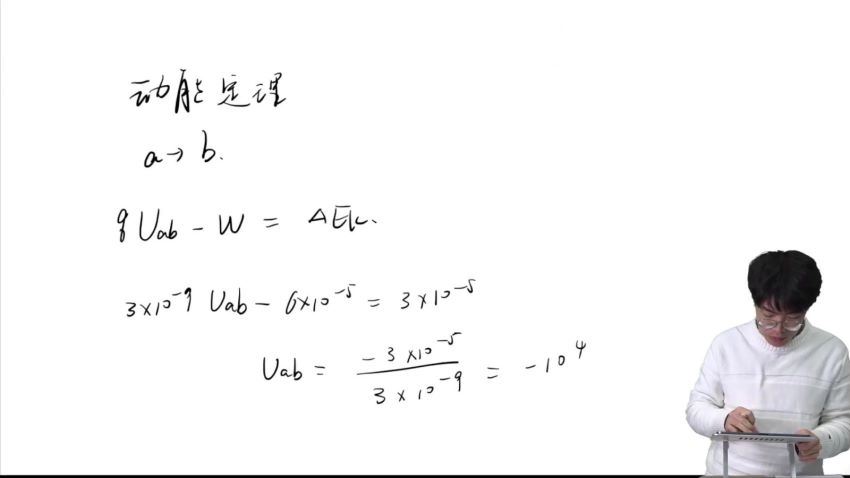 动能定理
a→b.
qUab - W = ΔEk.
3×10⁻⁹ Uab - 6×10⁻⁵ = 3×10⁻⁵
Uab = -3×10⁻⁵ / 3×10⁻⁹ = -10⁴